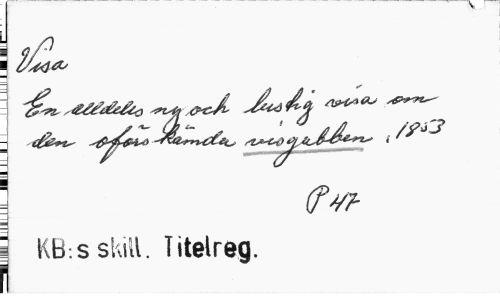 Visa
En alldeles ny och lustig visa om
den oförskämda visgubben, 1853
P 47
KB:s skill. Titelreg.